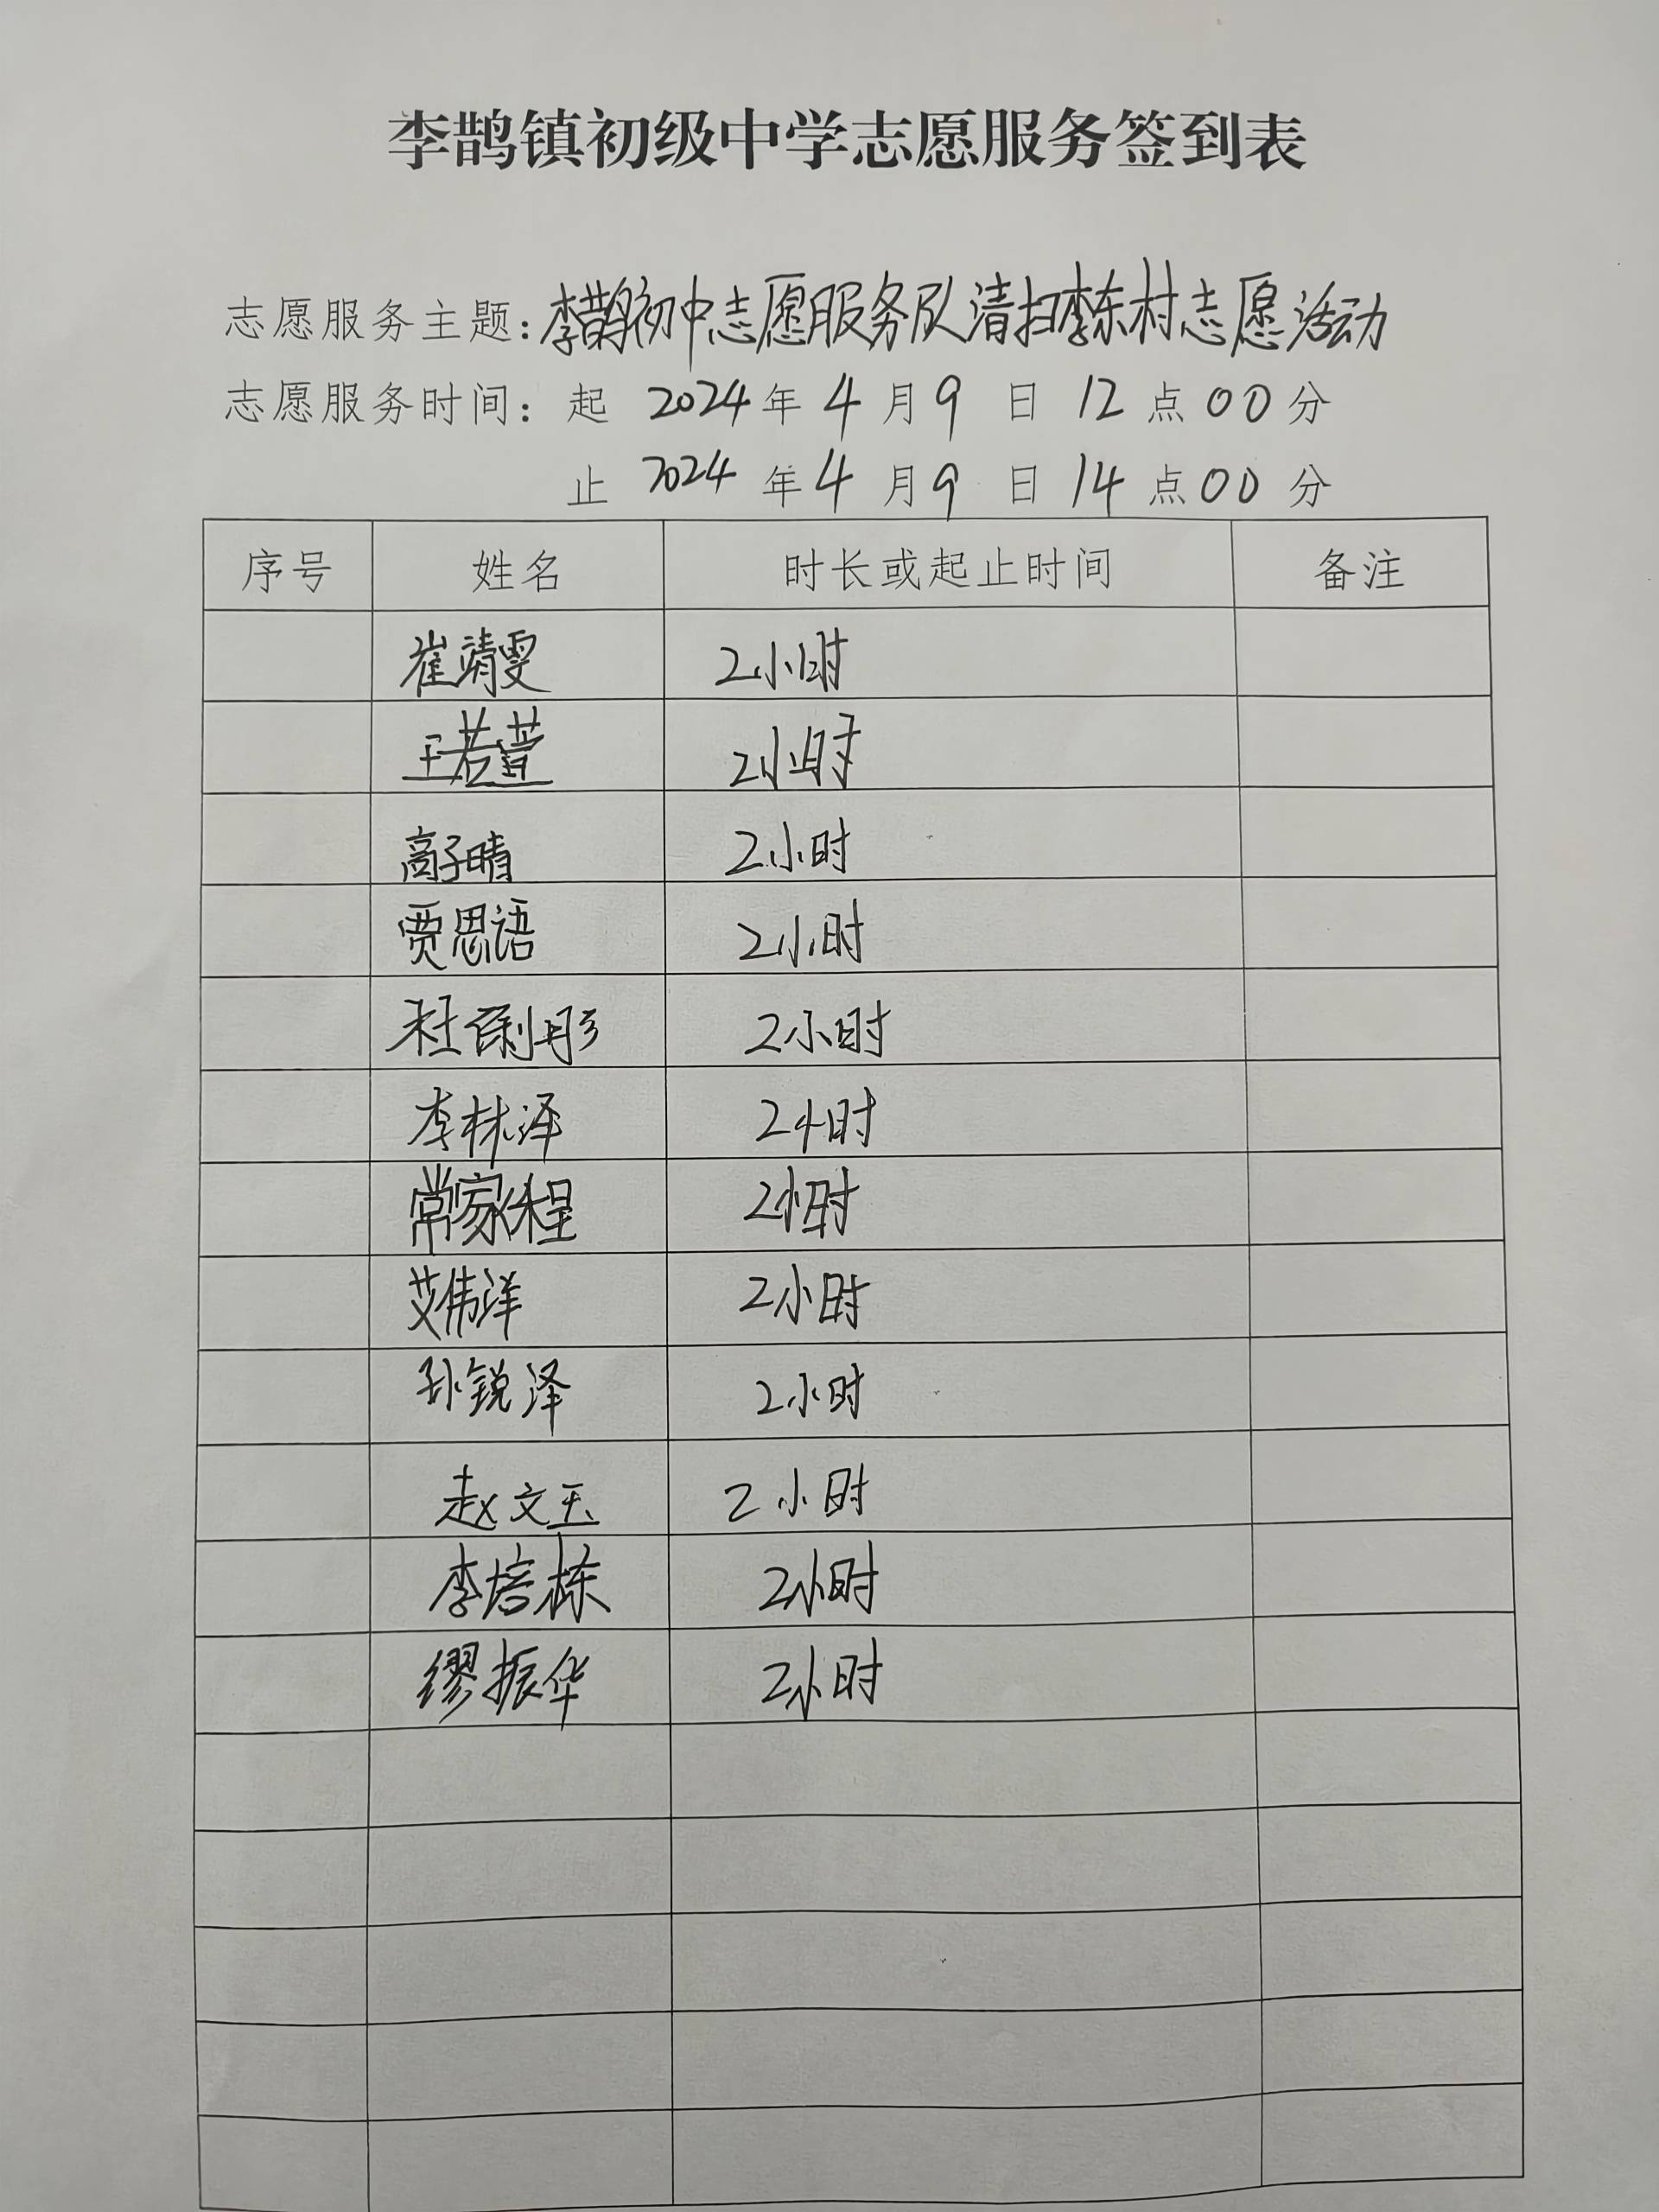 李鹊镇初级中学志愿服务签到表
志愿服务主题:李鹊初中志愿服务队清扫李东村志愿活动
志愿服务时间:起 2024年4月9日12点00分
止 2024年4月9日14点00分
序号 姓名 时长或起止时间 备注
崔靖雯 2小时
王若萱 2小时
高子晴 2小时
贾思语 2小时
杜俐彤 2小时
李林泽 2小时
常家程 2小时
艾伟洋 2小时
孙锐泽 2小时
赵文玉 2小时
李培栋 2小时
缪振华 2小时